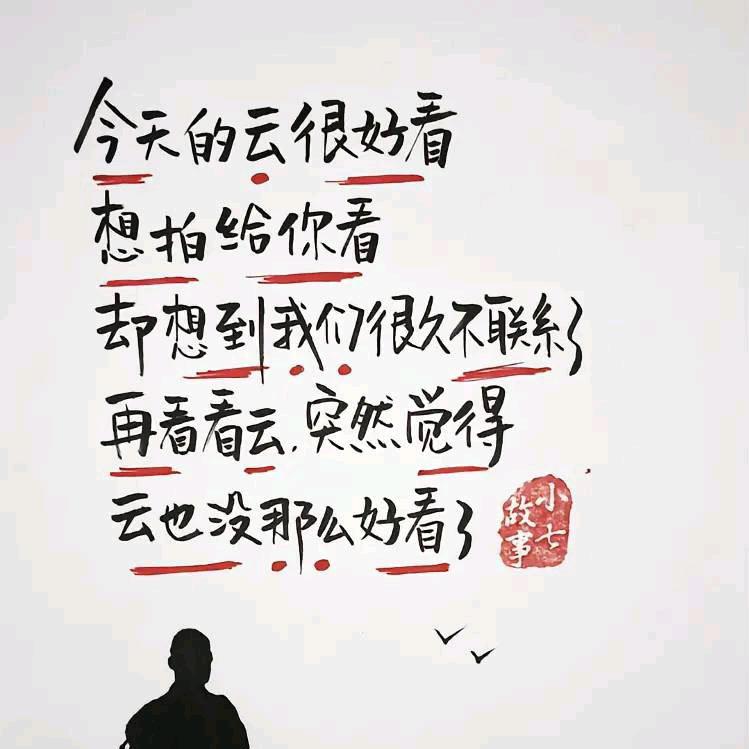 今天的云很好看
想拍给你看
却想到我们很久不联系了
再看看云,突然觉得
云也没那么好看了
小七
故事